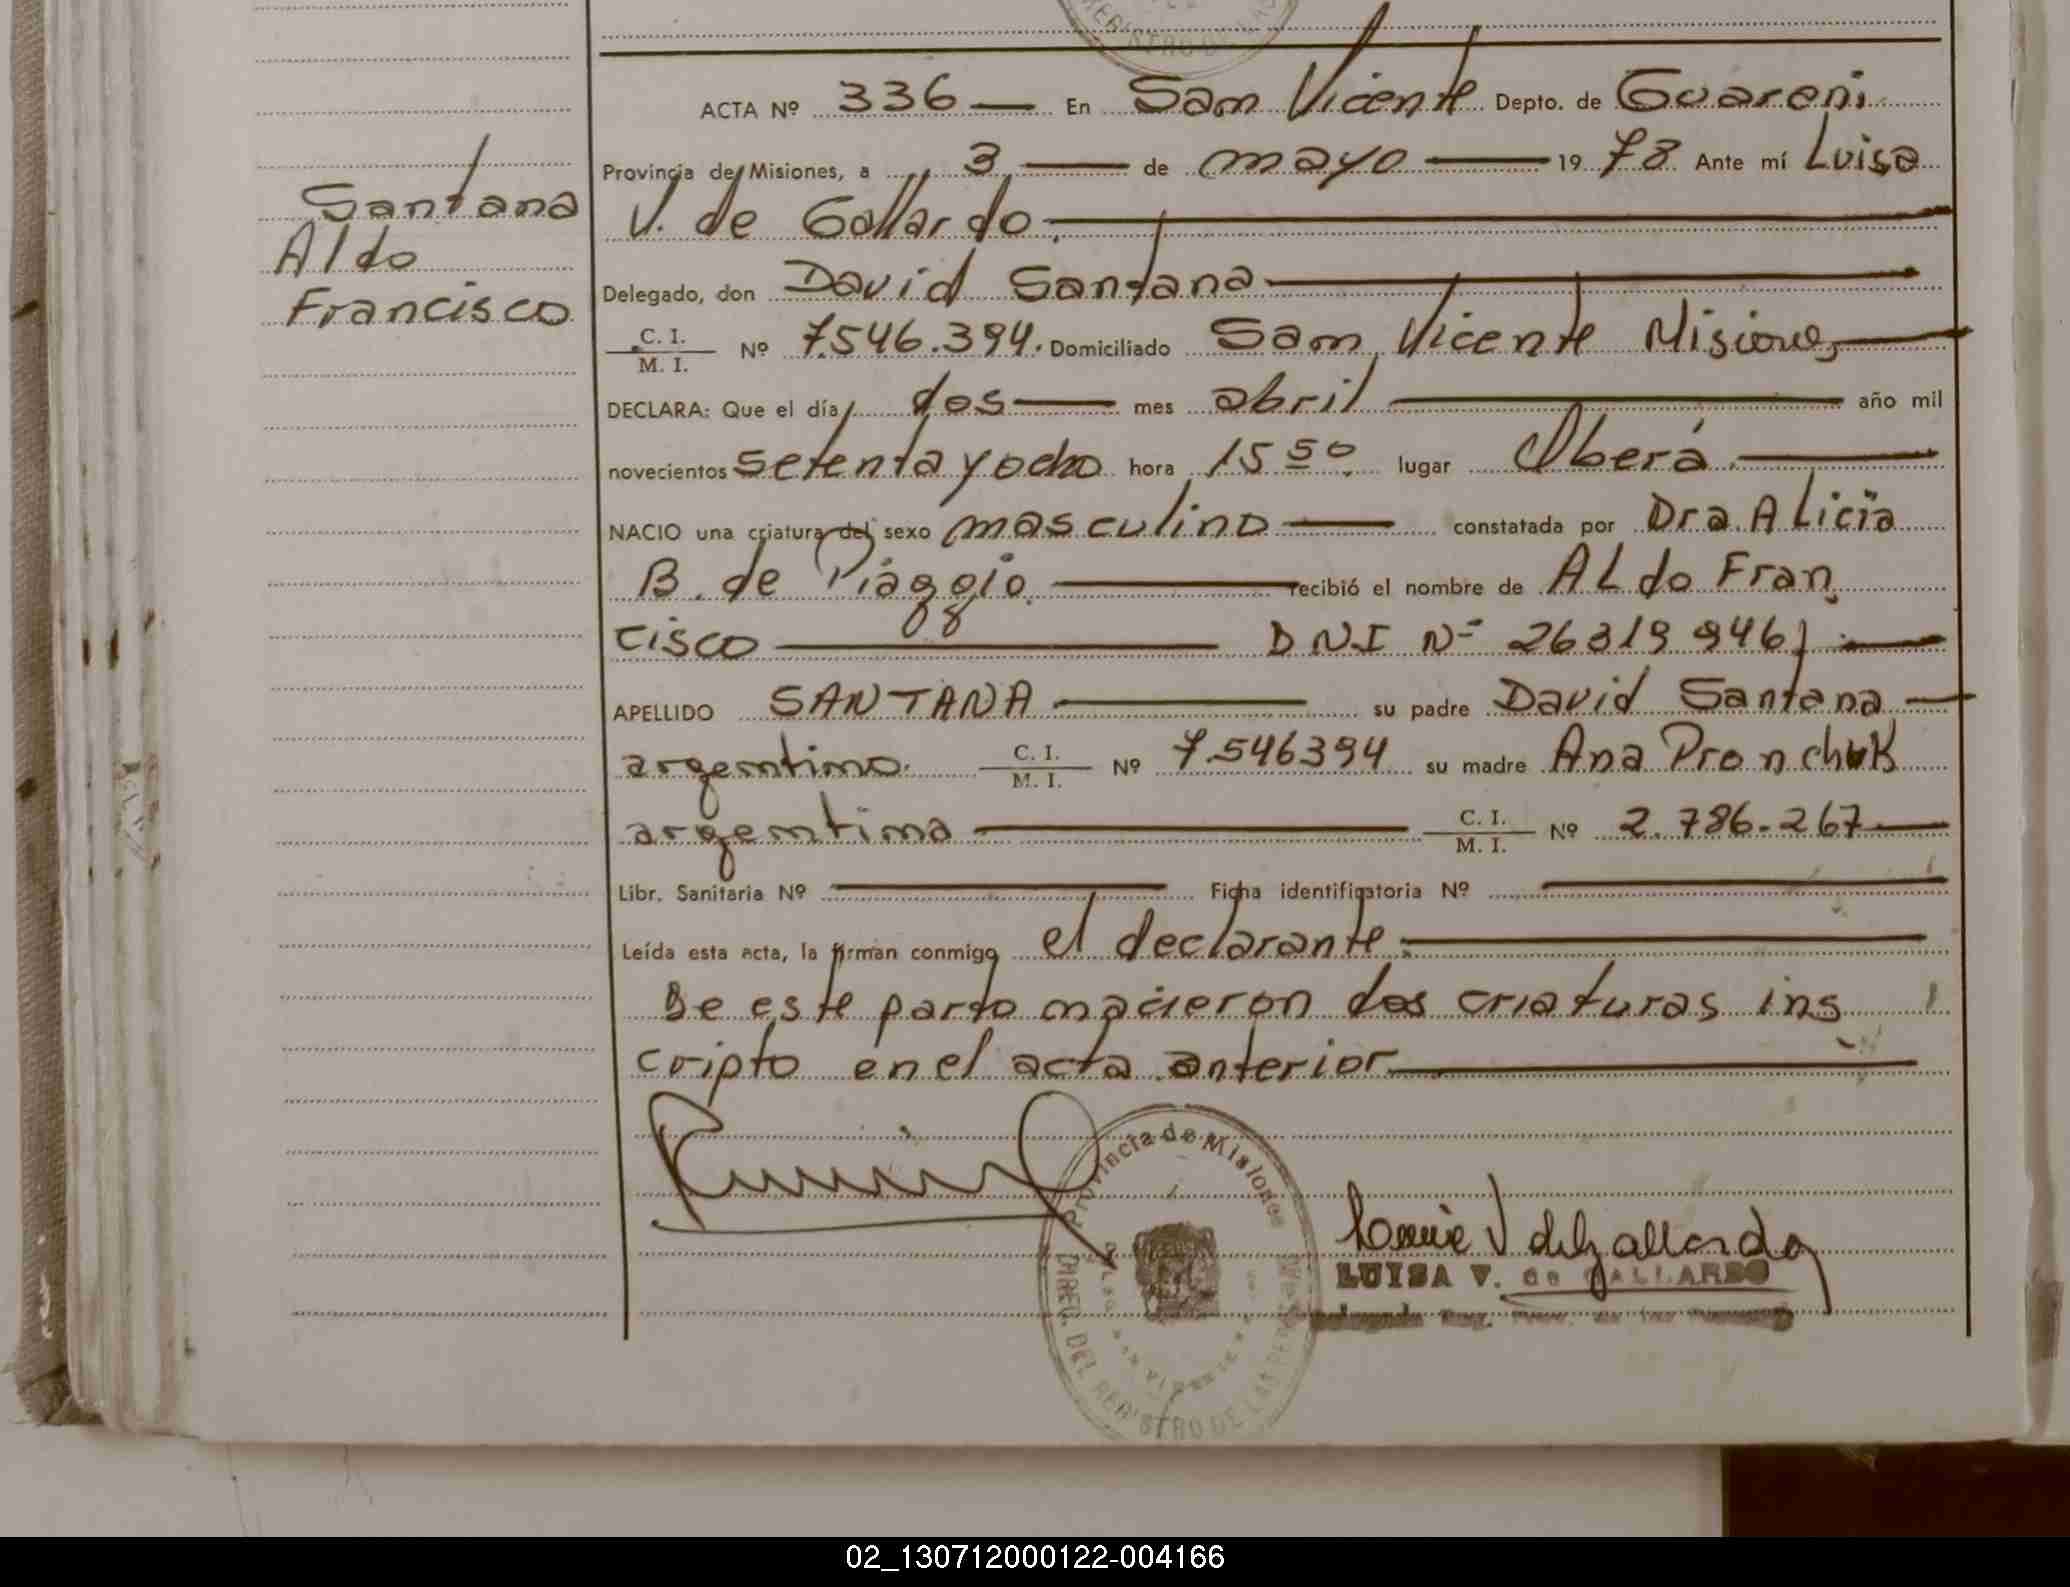 ACTA Nº 336 En San Vicente Depto. de Guarení
Provincia de Misiones, a 3 de mayo 19 78 Ante mí Luisa
V. de Gallardo.
Santana
Aldo
Francisco
Delegado, don David Santana
C. I. / M. I. Nº 7.546.394. Domiciliado San Vicente Misiones
DECLARA: Que el día dos mes abril año mil
novecientos setenta y ocho hora 15 50 lugar Oberá
NACIO una criatura del sexo masculino constatada por Dra. Alicia
B. de Piaggio. recibió el nombre de Aldo Fran
cisco DNI Nº 26319946
APELLIDO SANTANA su padre David Santana
argentino. C. I. / M. I. Nº 7.546394 su madre Ana Pronchuk
argentina C. I. / M. I. Nº 2.786.267
Libr. Sanitaria Nº Ficha identificatoria Nº
Leída esta acta, la firman conmigo el declarante.
De este parto nacieron dos criaturas ins
cripto en el acta anterior
Provincia de Misiones
DIREC. DEL REGISTRO DE LAS PERSONAS
Luisa V de Gallardo
LUISA V. de GALLARDO
02_130712000122-004166